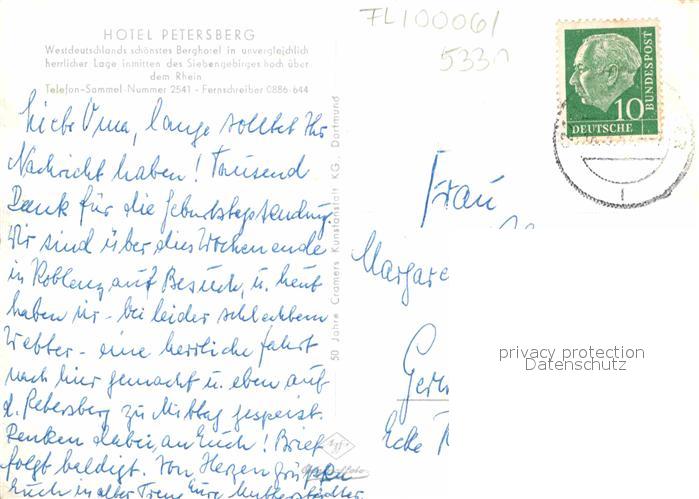 HOTEL PETERSBERG
Westdeutschlands schönstes Berghotel in unvergleichlich
herrlicher Lage inmitten des Siebengebirges hoch über
dem Rhein
Telefon-Sammel-Nummer 2541 - Fernschreiber 0886-644
Liebe Oma, lange solltet Ihr
Nachricht haben! Tausend
Dank für die Geburtstagssendung.
Wir sind über dies Wochenende
in Koblenz auf Besuch, u. heut
haben wir - bei leider schlechtem
Wetter - eine herrliche Fahrt
nach hier gemacht u. eben auf
d. Petersberg zu Mittag gespeist.
Denken dabei an Euch! Brief
folgt baldigt. Von Herzen grüßen
Euch in alter Treue Eure
50 Jahre Cramers Kunstanstalt KG. Dortmund
FL100061
5330
10
DEUTSCHE
BUNDESPOST
Frau
Margare
Ger
Ecke
privacy protection
Datenschutz
Agfa